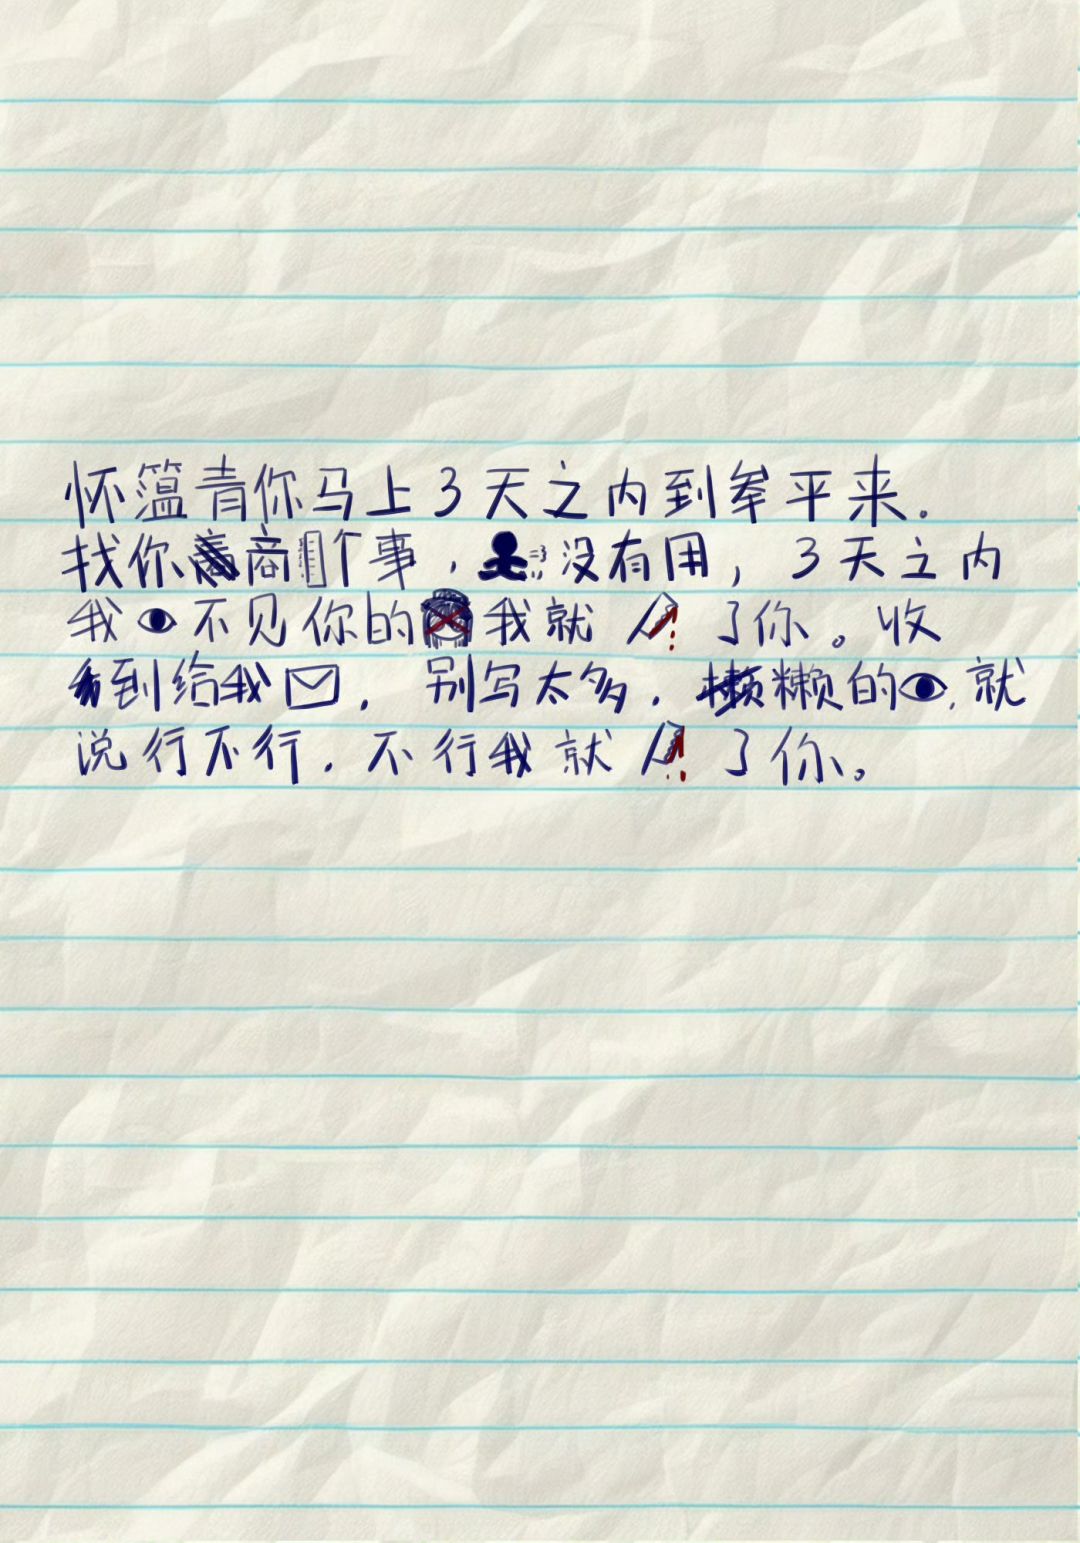 怀薀青你马上3天之内到牟平来.
找你商个事,没有用,3天之内
我不见你的我就了你。收
到给我,别写太多.懒的,就
说行不行.不行我就了你。